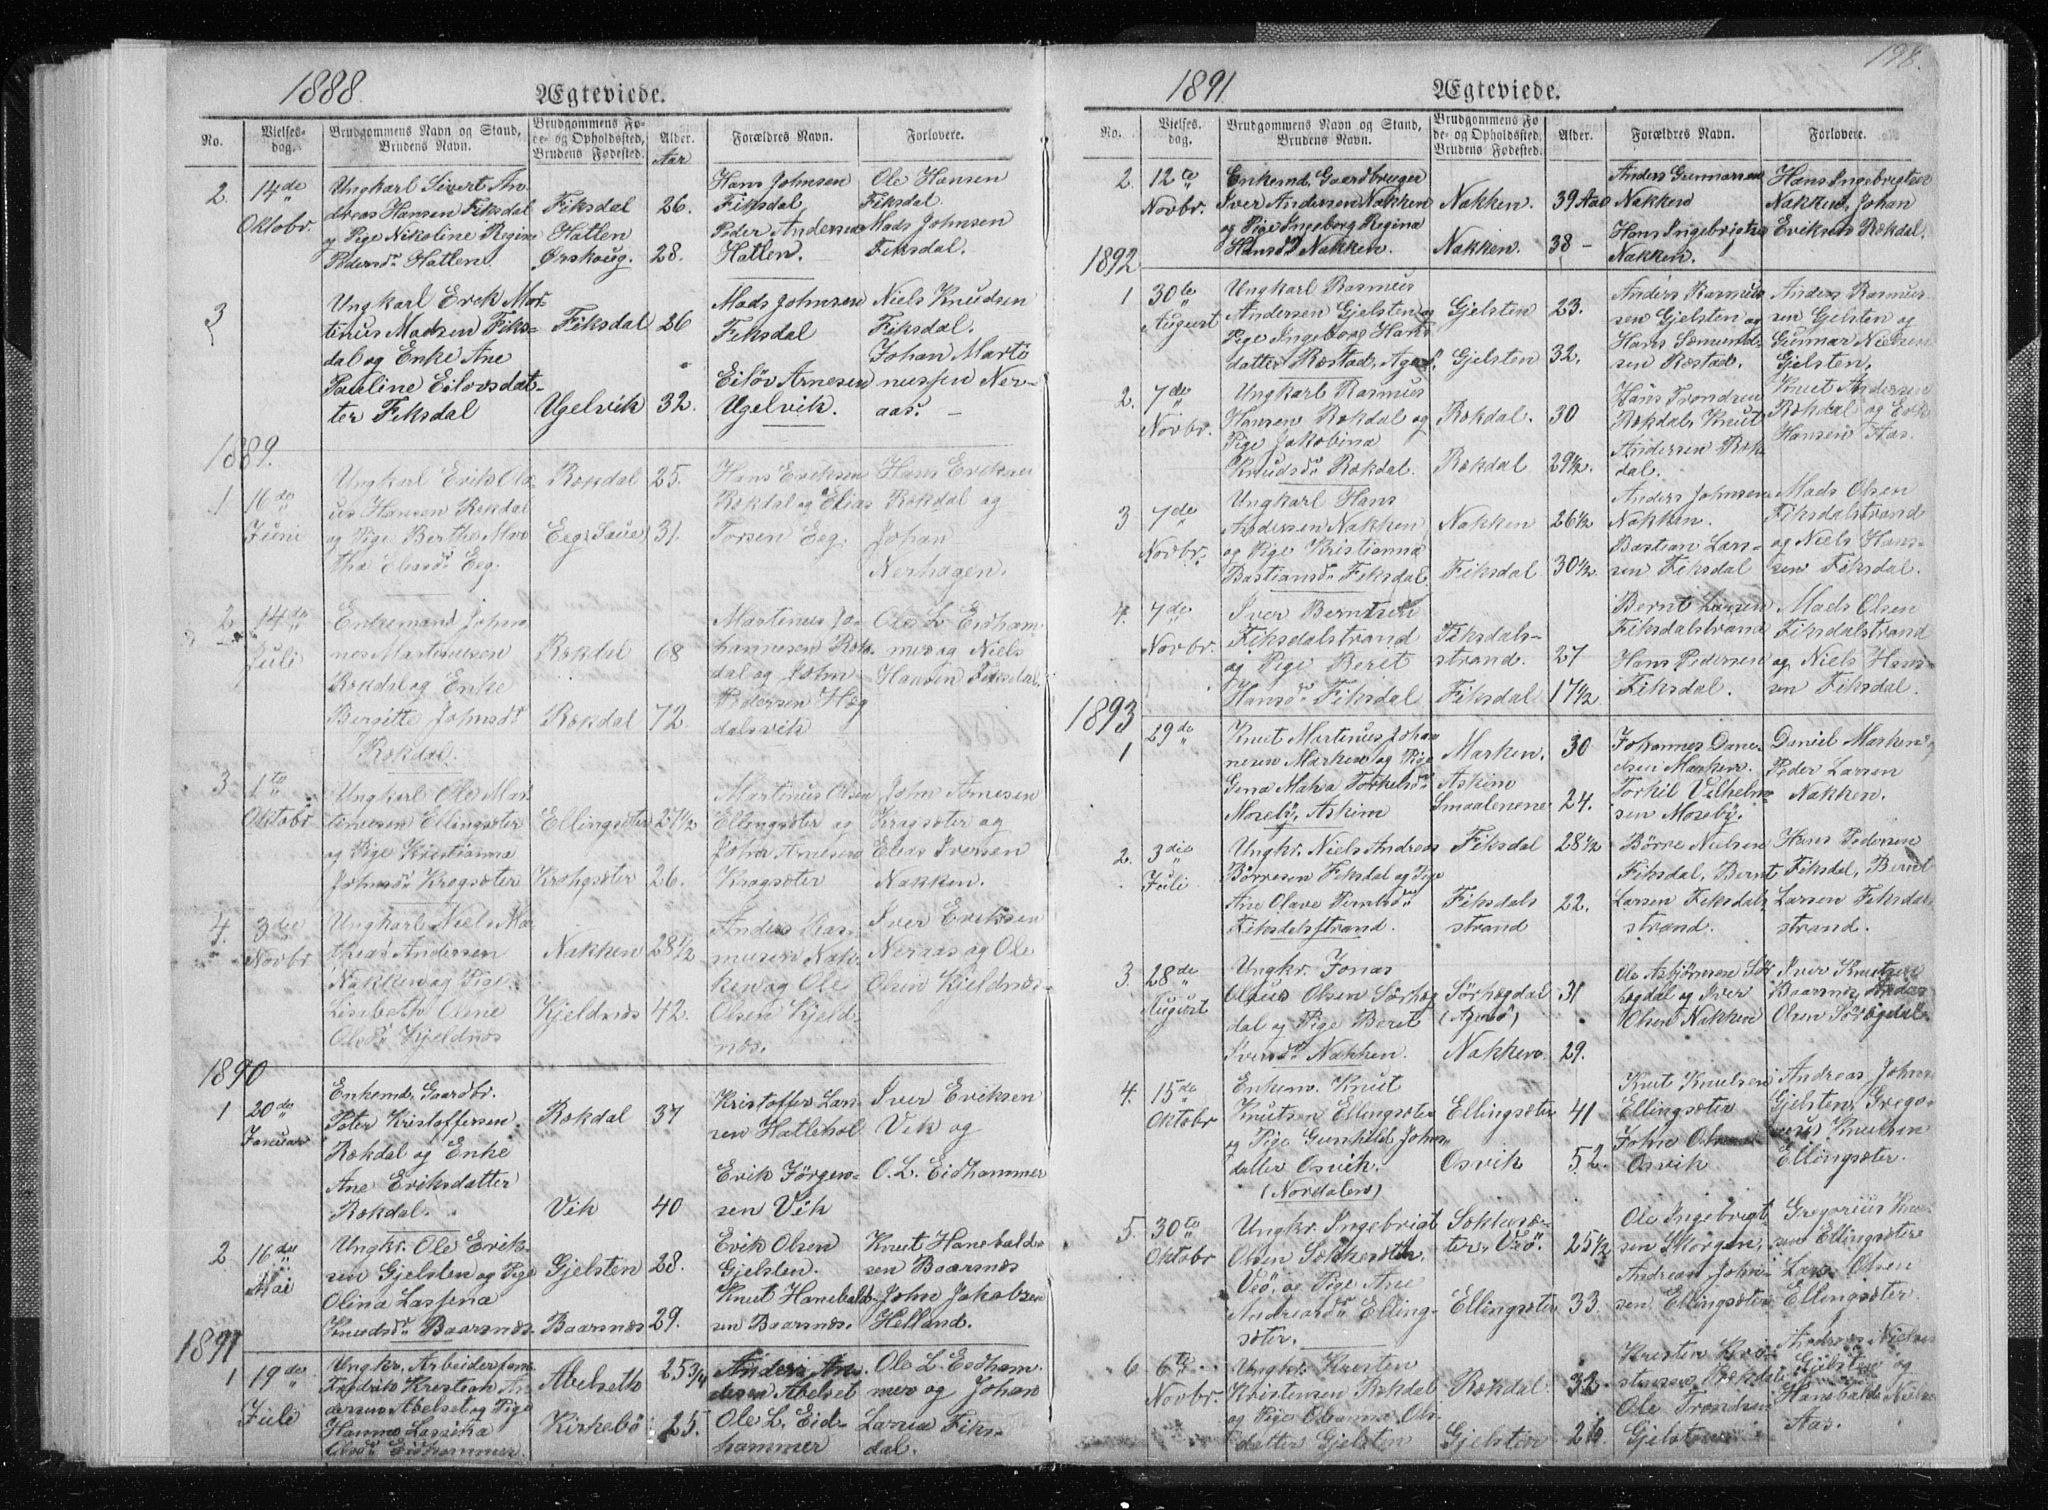 1888
Ægteviede.
No.
Vielses-
dag.
Brudgommens Navn og Stand,
Brudens Navn.
Brudgommens Fø-
de- og Opholdssted,
Brudens Fødested.
Alder.
Aar
Forældres Navn.
Forlovere.
2.
14de
Oktobr.
Ungkarl Sivert An
dreas Hansen Fiksdal
og Pige Nikoline Regine
Pedersdr Hatlen.
Fiksdal
Hatlen
Ørskoug.
26.
28.
Hans Johnsen
Fiksdal,
Peder Andersen
Hatlen.
Ole Hansen
Fiksdal.
Mads Johnsen
Fiksdal.
3
Ungkarl Erik Mar-
tinus Madsen Fiks-
dal og Enke Ane
Pauline Eilovsdat-
ter Fiksdal
Fiksdal
Ugelvik
26
32.
Mads Johnsen
Fiksdal
Eiløv Arnesen
Ugelvik.
Niels Knudsen
Fiksdal.
Johan Marti
nussen Ner-
aas. –
1889.
1
16de
Juni
Ungkarl Erik Ola
us Hansen Rekdal
og Pige Berthe Mar
tha Eliasdr Eeg.
Rekdal
Eeg
25.
31.
Hans Eriksen
Rekdal og Elias
Torsen Eeg.
Hans Eriksen
Rekdal og
Johan
Nerhagen.
2.
14de
Juli
Enkemand Johan
nes Martinussen
Rekdal og Enke
Bergitte Johnsdr
Rekdal
Rekdal
Rekdal
68
72.
Martinus Jo-
hannesen Rek-
dal og John
Pedersen Hæg
dalsvik
Ole L. Eidham-
mer og Niels
Hansen Fiksdal.
3
1te
Oktobr
Ungkarl Ole Mar-
tinusen Ellingsæter
og Pige Kristianna
Johnsdr Kragsæter
Ellingsæter
Krohgsæter
27½
26.
Martinus Olsen
Ellingsæter og
John Arnesen
Kragsæter
John Arnesen
Kragsæter og
Elias Iversen
Nakken.
4.
3de
Novbr
Ungkarl Niels Ma-
theas Andersen
Nakken og Pige
Lisabeth Oline
Olsdr Kjeldnæs
Nakken
Kjeldnæs
28½
42.
Anders Ras-
musen Nak-
ken og Ole
Olsen Kjeld
næs.
Iver Eriksen
Neraas og Ole
Olsen Kjeldnæs-
1890
1
20de
Januar
Enkemd. Gaardbr.
Peter Kristoffersen
Rekdal og Enke
Ane Eriksdatter
Rekdal.
Rekdal
Vik
37
40
Kristoffer Lar-
sen Hatlehol
Erik Jørgen-
sen Vik
Iver Eriksen
Vik og
O. L. Eidhammer
2
16de
Mai
Ungkr. Ole Erik-
sen Gjelsten og Pige
Olina Lassina
Knudsdr Baarsnæs
Gjelsten
Baarsnæs
28.
29.
Erik Olsen
Gjelsten.
Knut Hanebald-
sen Baarsnæs.
Knut Hanebald-
sen Baarsnæs
John Jakobsen
Helland.
1891
1
19de
Juli
Ungkr. Arbeiderform
Fredrik Kristian An
dersen Abelset og Pige
Hanna Lassina
Olsdr Eidhammer.
Abelseth
Kirkebö
25 3/4
25.
Anders An
dersen Abelset
Ole L. Eid-
hammer
Ole L. Eidham
mer og Johan
Larsen Fiks-
dal.
198.
1891
Ægteviede.
No.
Vielses-
dag.
Brudgommens Navn og Stand,
Brudens Navn.
Brudgommens Fø
de- og Opholdssted,
Brudens Fødested.
Alder.
Forældres Navn.
Forlovere.
2.
12te
Novbr.
Enkemd. Gaardbruger
Iver Andersen Nakken
og Pige Ingeborg Regina
Hansdr Nakken.
Nakken.
Nakken.
39 Aar
38 –
Anders Gunnarsen
Nakken
Hans Ingebrigtsen
Nakken.
Hans Ingebrigtsen
Nakken, Johan
Eriksen Rekdal.
1892
1
30te
August
Ungkarl Rasmus
Andersen Gjelsten og
Pige Ingeborg Hans
datter Ræstad, Agerø.
Gjelsten
Gjelsten
23.
32.
Anders Rasmus
sen Gjelsten og
Hans Semund-
sen Ræstad.
Anders Rasmus
sen Gjelsten og
Gunnar Nielsen
Gjelsten.
2.
7de
Novbr.
Ungkarl Rasmus
Hansen Rekdal og
Pige Jakobina
Knudsdr Rekdal.
Rekdal.
Rekdal
30
29½
Hans Trondsen
Rekdal, Knut
Andersen Rek
dal.
Knut Andersen
Rekdal og Erik
Hansen Aas.
3
7de
Novbr.
Ungkarl Hans
Andersen Nakken
og Pige Kristianna
Bastiansdr Fiksdal
Nakken
Fiksdal
26½
30½
Anders Johnsen
Nakken.
Bastian Lar-
sen Fiksdal
Mads Olsen
Fiksdalstrand
og Niels Han-
sen Fiksdal.
4.
7de
Novbr.
Iver Berntsen
Fiksdalstrand
og Pige Beret
Hansdr Fiksdal
Fiksdals-
strand.
Fiksdal
27
17½
Bernt Larsen
Fiksdalstrand
Hans Pedersen
Fiksdal.
Mads Olsen
Fiksdalstrand
og Niels Han-
sen Fiksdal.
1893
1
29de
Knut Martinus Johan
nesen Marken og Pige
Gina Maria Torkelsdr
Moseby, Askim
Marken.
Askim
Smaalenene
30
24.
Johannes Dani-
elsen Marken.
Torkil Vilhelm-
sen Moseby.
Daniel Marken
Peder Larsen
Nakken.
2.
3die
Juli
Ungkr. Niels Andreas
Börresen Fiksdal og Pige
Ane Olave Berntsdr
Fiksdalsstrand.
Fiksdal
Fiksdals
strand
28½
22.
Börre Nielsen
Fiksdal, Bernt
Larsen Fiksdal-
strand.
Hans Pedersen
Fiksdal, Bernt
Larsen Fiksdal
strand.
3.
28de
August
Ungkr. Jonas
Olaus Olsen Sörhæg
dal og Pige Beret
Iversdr Nakken.
Sörhægdal
(Agerö)
Nakken
31
29.
Ole Asbjörnsen Sör
hægdal og Iver
Olsen Nakken
Iver Knutsen
Baarsnæs, Anders
Olsen Sörhægdal.
4.
15de
Oktobr
Enkem. Knut
Knutsen Ellingsæter
og Pige Gunhild Johns
datter Osvik.
(Nordalen)
Ellingsæter
Osvik
41
52.
Knut Knutsen
Ellingsæter
John
Osvik
Andreas Johns
Gjelsten, Grego-
rius Knutsen
Ellingsæter.
5.
30te
Oktobr
Ungkr. Ingebrigt
Olsen Sekkesæter
Veö. og Pige Ane
Andreasdr Elling-
sæter.
Sekkesæ-
ter, Veö.
Ellingsæter
25½
33.
Ole Ingebrigt-
sen Skorgen,
Andreas John-
sen Ellingsæter
Gregorius Knu-
sen Ellingsæter
Lars Olsen
Ellingsæter.
6
6te
Novbr.
Ungkr. Kristen
Kristensen Rekdal
og Pige Oleanna Ols-
datter Gjelsten
Rekdal
Gjelsten
32
26.
Kristen Kri-
stensen Rekdal
Ole Trondsen
Gjelsten
Andreas Nielsen
Gjelsten og
Hanebald Niels
Aas.